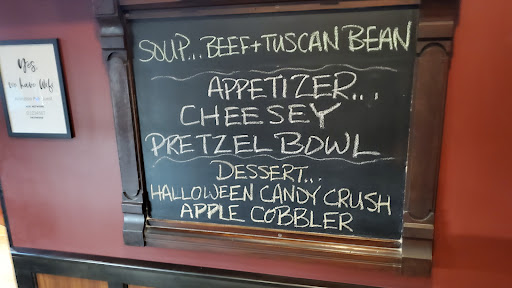 Yes,
we have Wifi
SOUP... BEEF + TUSCAN BEAN
APPETIZER...
CHEESEY
PRETZEL BOWL
DESSERT...
HALLOWEEN CANDY CRUSH
APPLE COBBLER